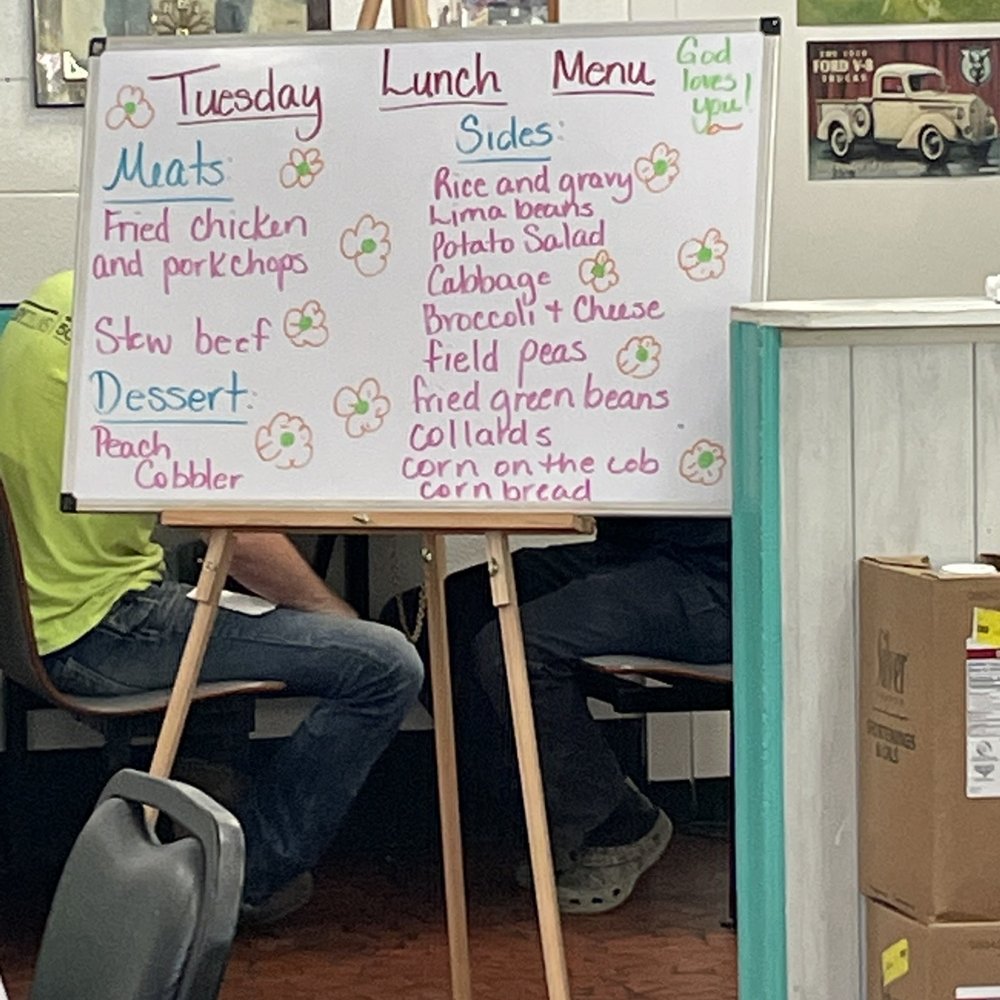 Tuesday Lunch Menu
God
loves
you!
Meats:
Fried chicken
and porkchops
Stew beef
Dessert:
Peach
Cobbler
Sides:
Rice and gravy
Lima beans
Potato Salad
Cabbage
Broccoli + Cheese
field peas
fried green beans
collards
corn on the cob
corn bread
FORD V-8
TRUCKS
& OILS